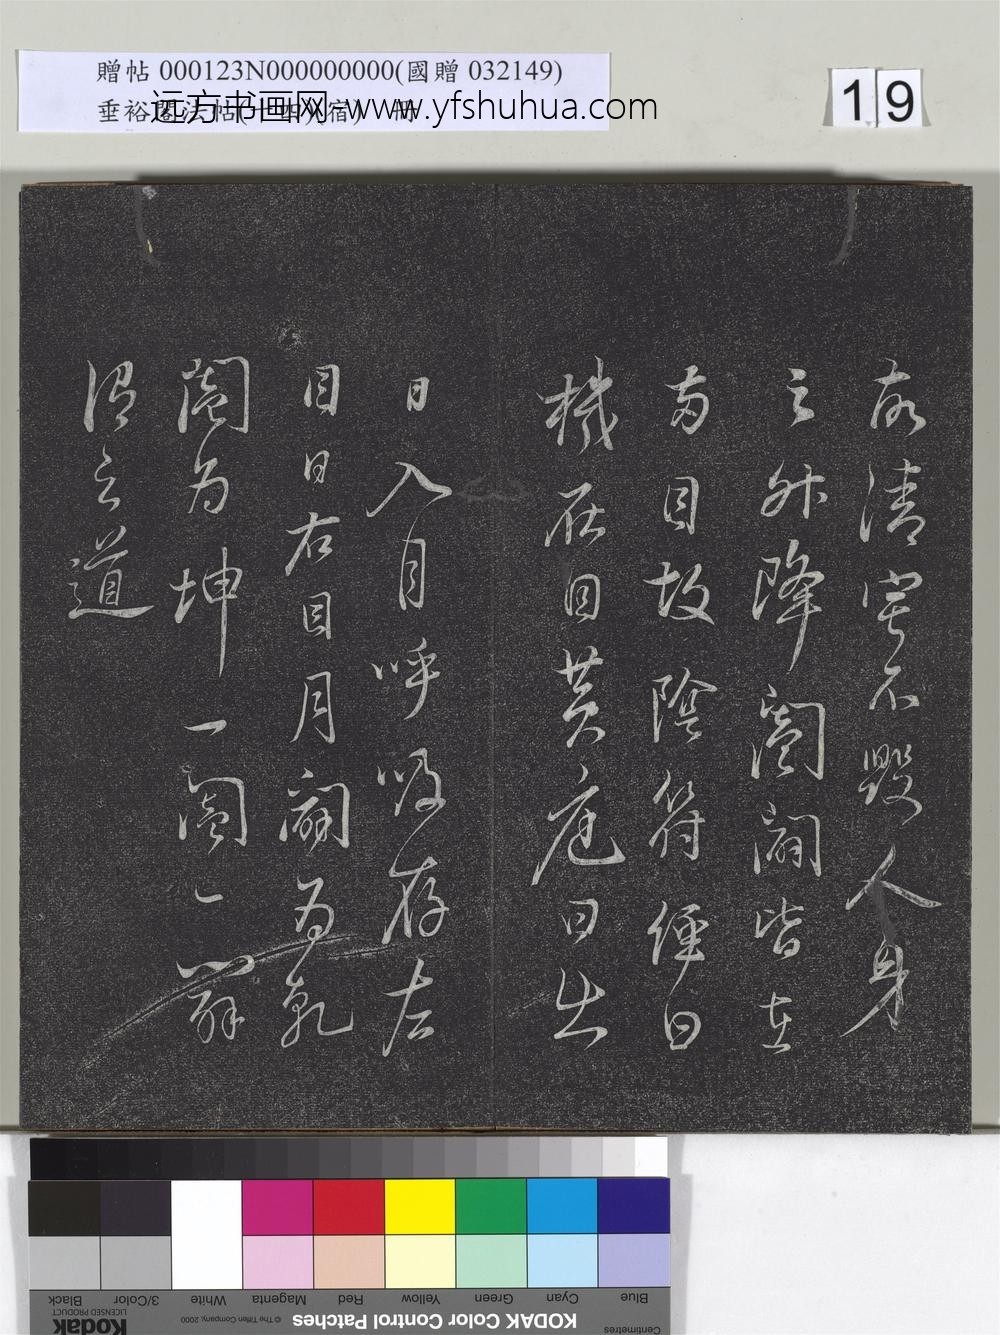 贈帖 000123N000000000(國贈 032149)
垂裕閣法帖
远方书画网 www.yfshuhua.com
19
故清寧不毀人身
之升降闔闢皆在
兩目故陰符經曰
機在目黃庭曰出
日入月呼吸存左
目日右目月闢為乾
闔為坤一闔一闢
謂之道
Blue Cyan Green Yellow Red Magenta White 3/Color Black
Centimetres
KODAK Color Control Patches
© The Tiffen Company, 2000
Kodak
LICENSED PRODUCT